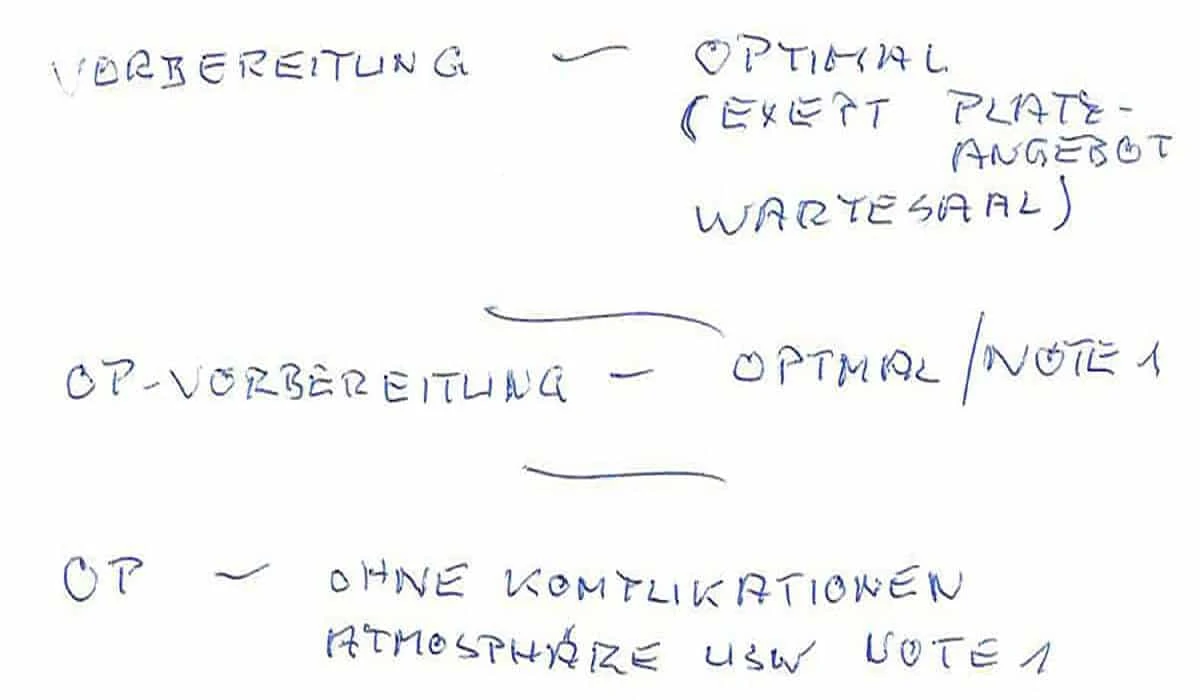 VORBEREITUNG – OPTIMAL
(EXEPT PLATZ-
ANGEBOT
WARTESAAL)
OP-VORBEREITUNG – OPTMAL/NOTE 1
OP – OHNE KOMPLIKATIONEN
ATMOSPHÄRE USW NOTE 1